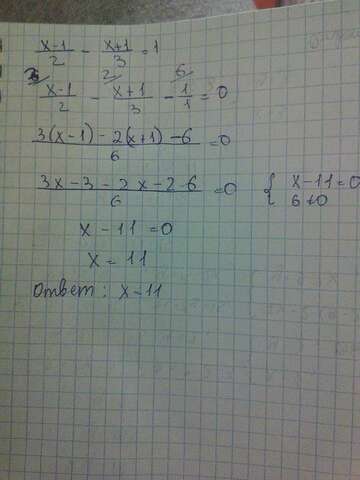 x-1/2 - x+1/3 = 1
3/ x-1/2 - 2/ x+1/3 - 6/ 1/1 = 0
3(x-1)-2(x+1)-6/6 = 0
3x-3-2x-2-6/6 = 0 { x-11=0 6≠0
x-11=0
x=11
Ответ: x-11